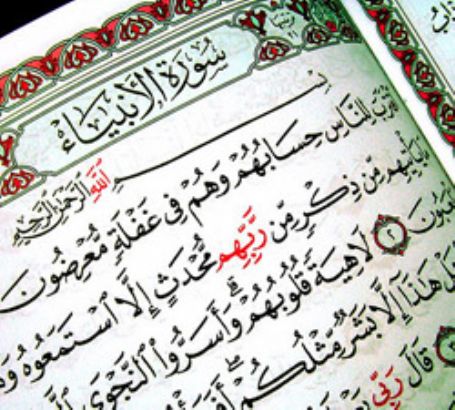 سُورَةُ الأَنْبِيَاءِ
بِسْمِ ٱللَّهِ ٱلرَّحْمَٰنِ ٱلرَّحِيمِ
لِلنَّاسِ حِسَابُهُمْ وَهُمْ فِى غَفْلَةٍ مُّعْرِضُونَ
يَأْتِيهِم مِّن ذِكْرٍ مِّن رَّبِّهِم مُّحْدَثٍ إِلَّا ٱسْتَمَعُوهُ
٢ لَاهِيَةً قُلُوبُهُمْ وَأَسَرُّوا۟ ٱلنَّجْوَى
هَٰذَآ إِلَّا بَشَرٌ مِّثْلُكُمْ
٣ قَالَ رَبِّى